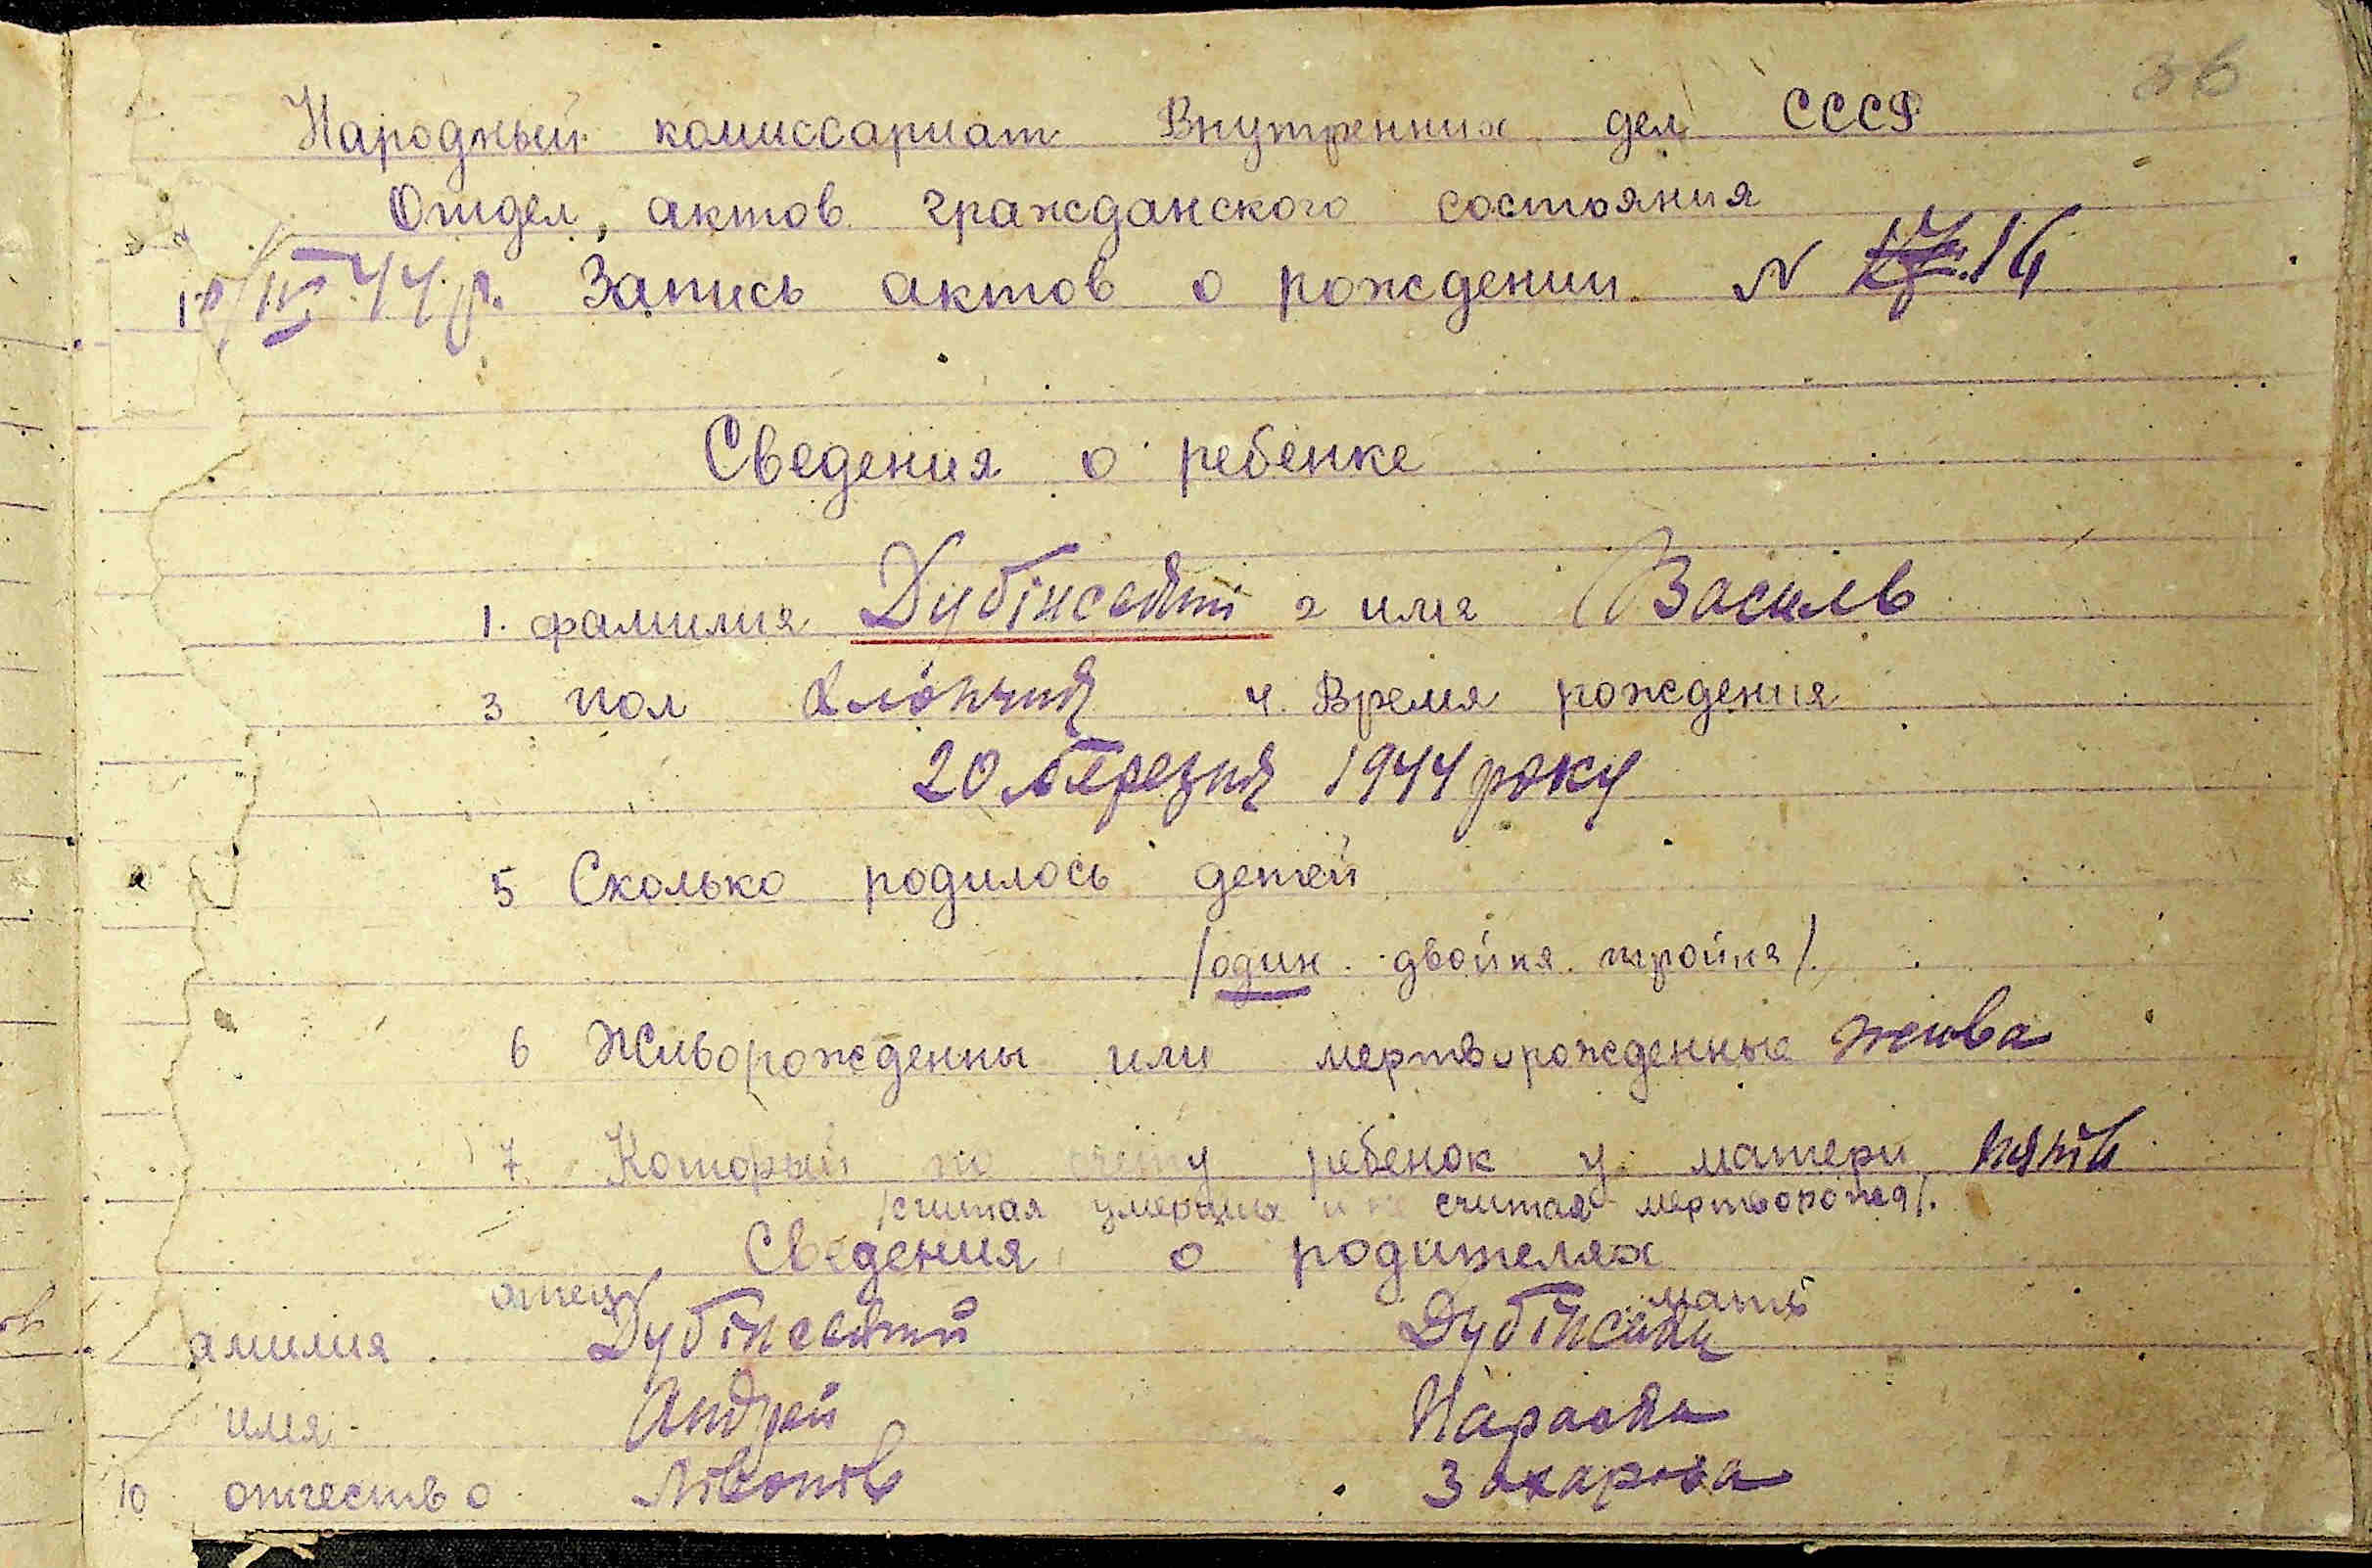 36
Народный комиссариат Внутренних дел СССР
Отдел, актов гражданского состояния
IV 44 р. Запись актов о рождении N 17 16
Сведения о ребенке
1. фамилия 2 имя Василь
3 пол Хлопчик 4. Время рождения
20 березня 1944 року
5 Сколько родилось детей
/один. двойня. тройня/.
6 Живорожденны или мертворожденные жива
7. Который по счету ребенок у матери пять
/считая умерших и не считая мертворожд/.
Сведения о родителях
отец мать
амилия
имя Андрей Параска
10 отчество Захарова